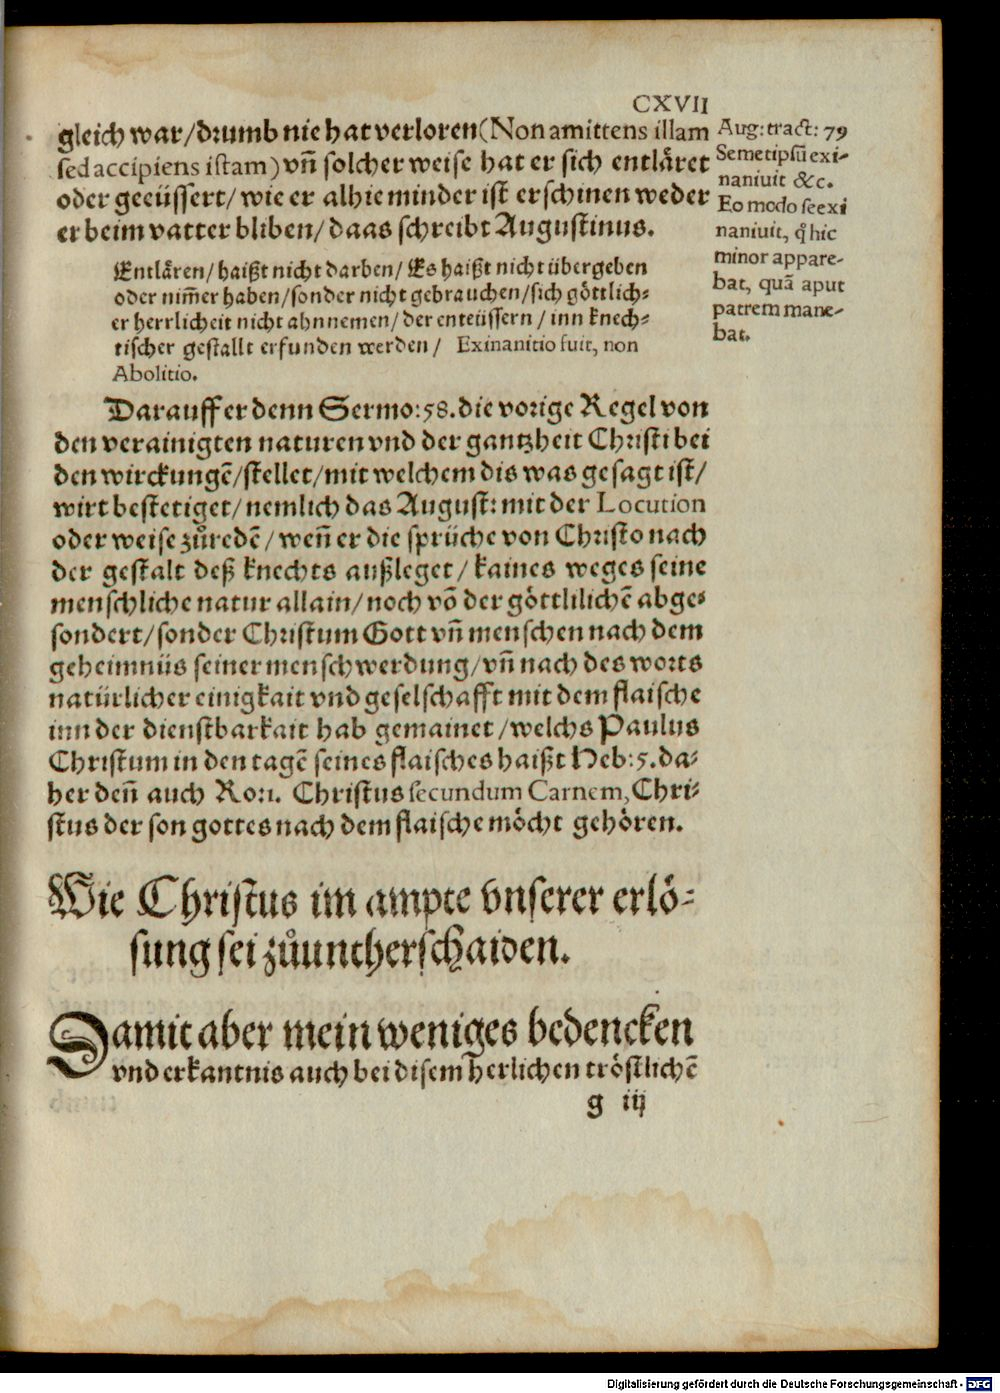 CXVII
gleich war/drumb nie hat verloren(Non amittens illam
sed accipiens istam) vñ solcher weise hat er sich entläret
oder geeüssert/ wie er alhie minder ist erschinen weder
er beim vatter bliben/ daas schreibt Augustinus.
Aug: tract: 79
Semetipsũ exi-
naniuit &c.
Eo modo se exi
naniuit, q̃ hic
minor appare-
bat, quã aput
patrem mane-
bat.
Entlären/ haißt nicht darben/ Es haißt nicht übergeben
oder nim̃er haben/sonder nicht gebrauchen/sich göttlich-
er herrlicheit nicht ahnnemen/ der enteüssern / inn knech-
tischer gestallt erfunden werden / Exinanitio fuit, non
Abolitio.
Darauff er denn Sermo: 58. die vorige Regel von
den verainigten naturen vnd der gantzheit Christi bei
den wirckungẽ/stellet/mit welchem dis was gesagt ist/
wirt bestetiget/ nemlich das August: mit der Locution
oder weise zůredẽ/ weñ er die sprüche von Christo nach
der gestalt deß knechts außleget/ kaines weges seine
menschliche natur allain/ noch võ der göttlilichẽ abge-
sondert/sonder Christum Gott vñ menschen nach dem
geheimnüs seiner menschwerdung/vñ nach des worts
natürlicher einigkait vnd geselschafft mit dem flaische
inn der dienstbarkait hab gemainet /welchs Paulus
Christum in den tagẽ seines flaisches haißt Heb: 5. da-
her deñ auch Ro:1. Christus secundum Carnem, Chri-
stus der son gottes nach dem flaische möcht gehören.
Wie Christus im ampte vnserer erlö-
sung sei zůuntherschaiden.
Damit aber mein weniges bedencken
vnd erkantnis auch bei disem herlichen tröstlichẽ
g iij
Digitalisierung gefördert durch die Deutsche Forschungsgemeinschaft - DFG